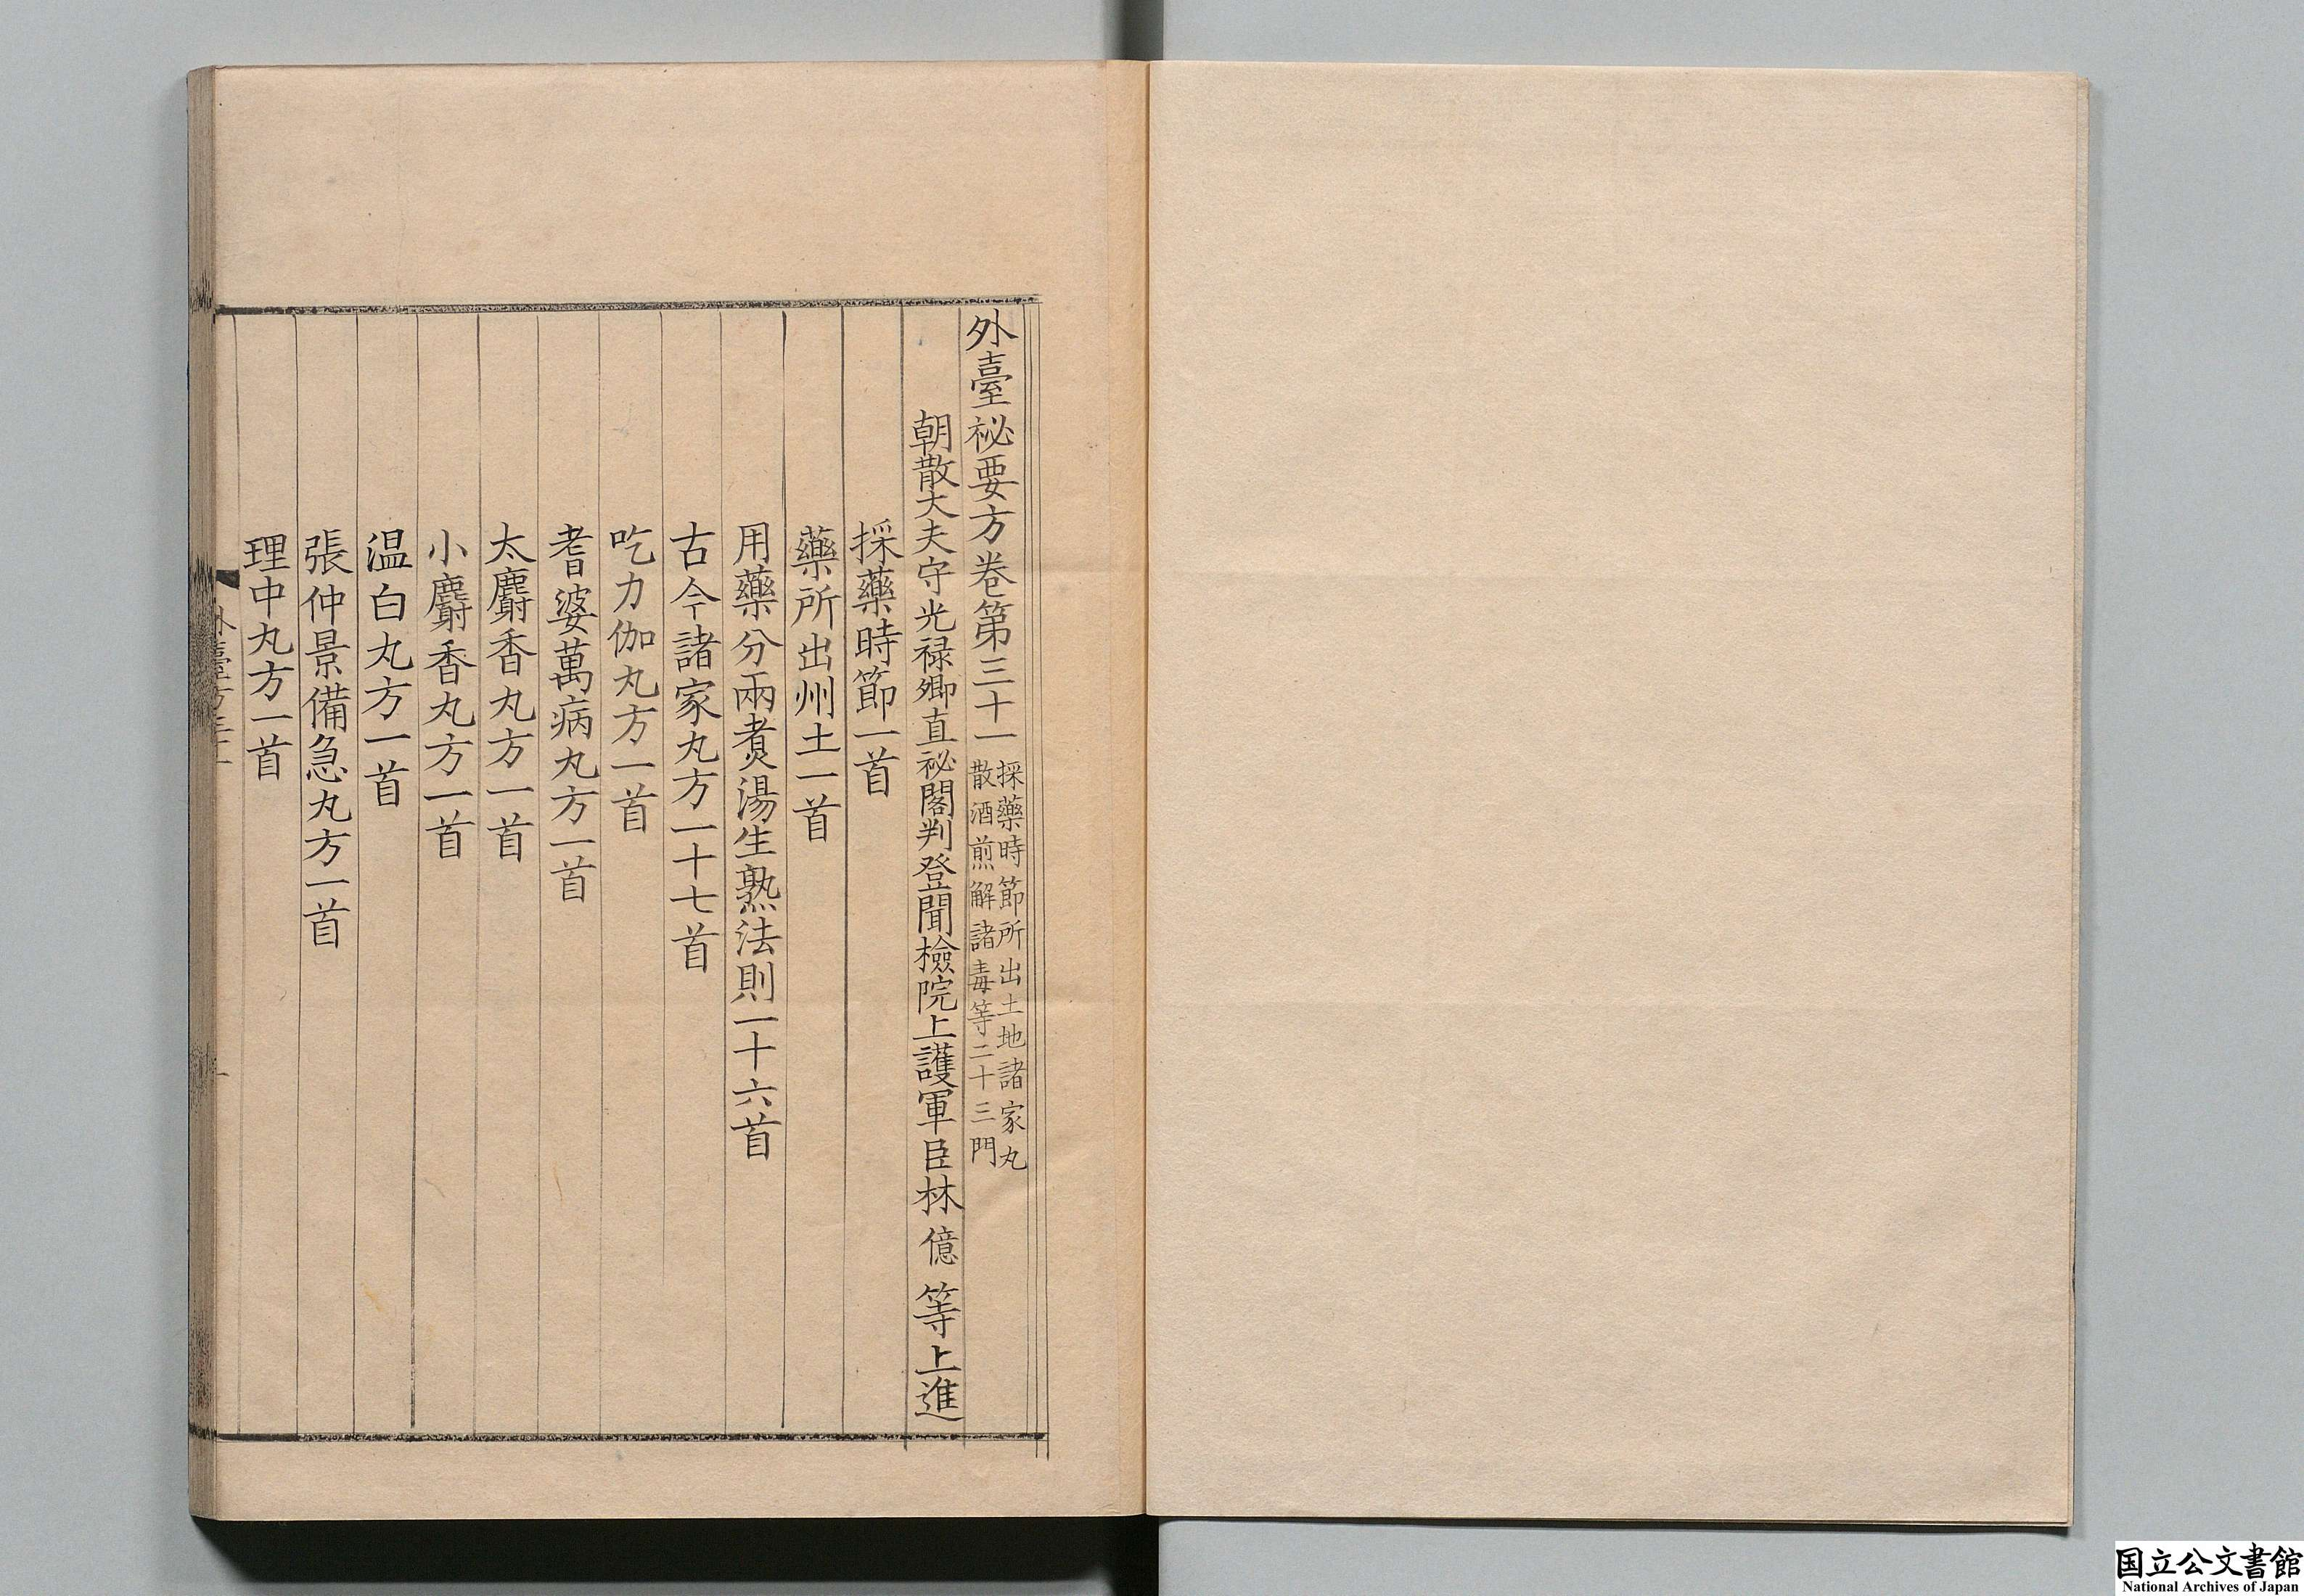 外臺祕要方卷第三十一
採藥時節所出土地諸家丸
散酒煎解諸毒等二十三門
朝散大夫守光禄卿直祕閣判登聞檢院上護軍臣林億等上進
採藥時節一首
藥所出州土一首
用藥分兩煮湯生熟法則一十六首
古今諸家丸方一十七首
吃力伽丸方一首
耆婆萬病丸方一首
太麝香丸方一首
小麝香丸方一首
温白丸方一首
張仲景備急丸方一首
理中丸方一首
外臺方三十一
一
国立公文書館
National Archives of Japan